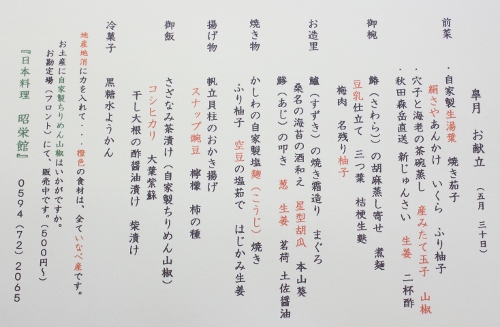 皐月　お献立　（五月　三十日）
前菜
・自家製生湯葉　焼き茄子
絹さやあんかけ　いくら　ふり柚子
・穴子と海老の茶碗蒸し　産みたて玉子　山椒
・秋田森岳直送　新じゅんさい　生姜　二杯酢
御椀
鰆（さわら）の胡麻蒸し寄せ　煮麺
豆乳仕立て　三つ葉　桔梗生麩
梅肉　名残り柚子
お造里
鱸（すずき）の焼き霜造り　まぐろ
桑名の海苔の酒和え　星型胡瓜　本山葵
鯵（あじ）の叩き　葱　生姜　茗荷　土佐醤油
焼き物
かしわの自家製塩麹（こうじ）焼き
ふり柚子　空豆の塩茹で　はじかみ生姜
揚げ物
帆立貝柱のおかき揚げ
スナップ豌豆　檸檬　柿の種
御飯
さざなみ茶漬け（自家製ちりめん山椒）
コシヒカリ　大葉紫蘇
干し大根の酢醤油漬け　柴漬け
冷菓子　黒糖水ようかん
地産地消に力を入れて・・橙色の食材は、全ていなべ産です。
お土産に自家製ちりめん山椒はいかがですか。
お勘定場（フロント）にて、販売中です。（５００円〜）
『日本料理　昭栄館』　０５９４（７２）２０６５